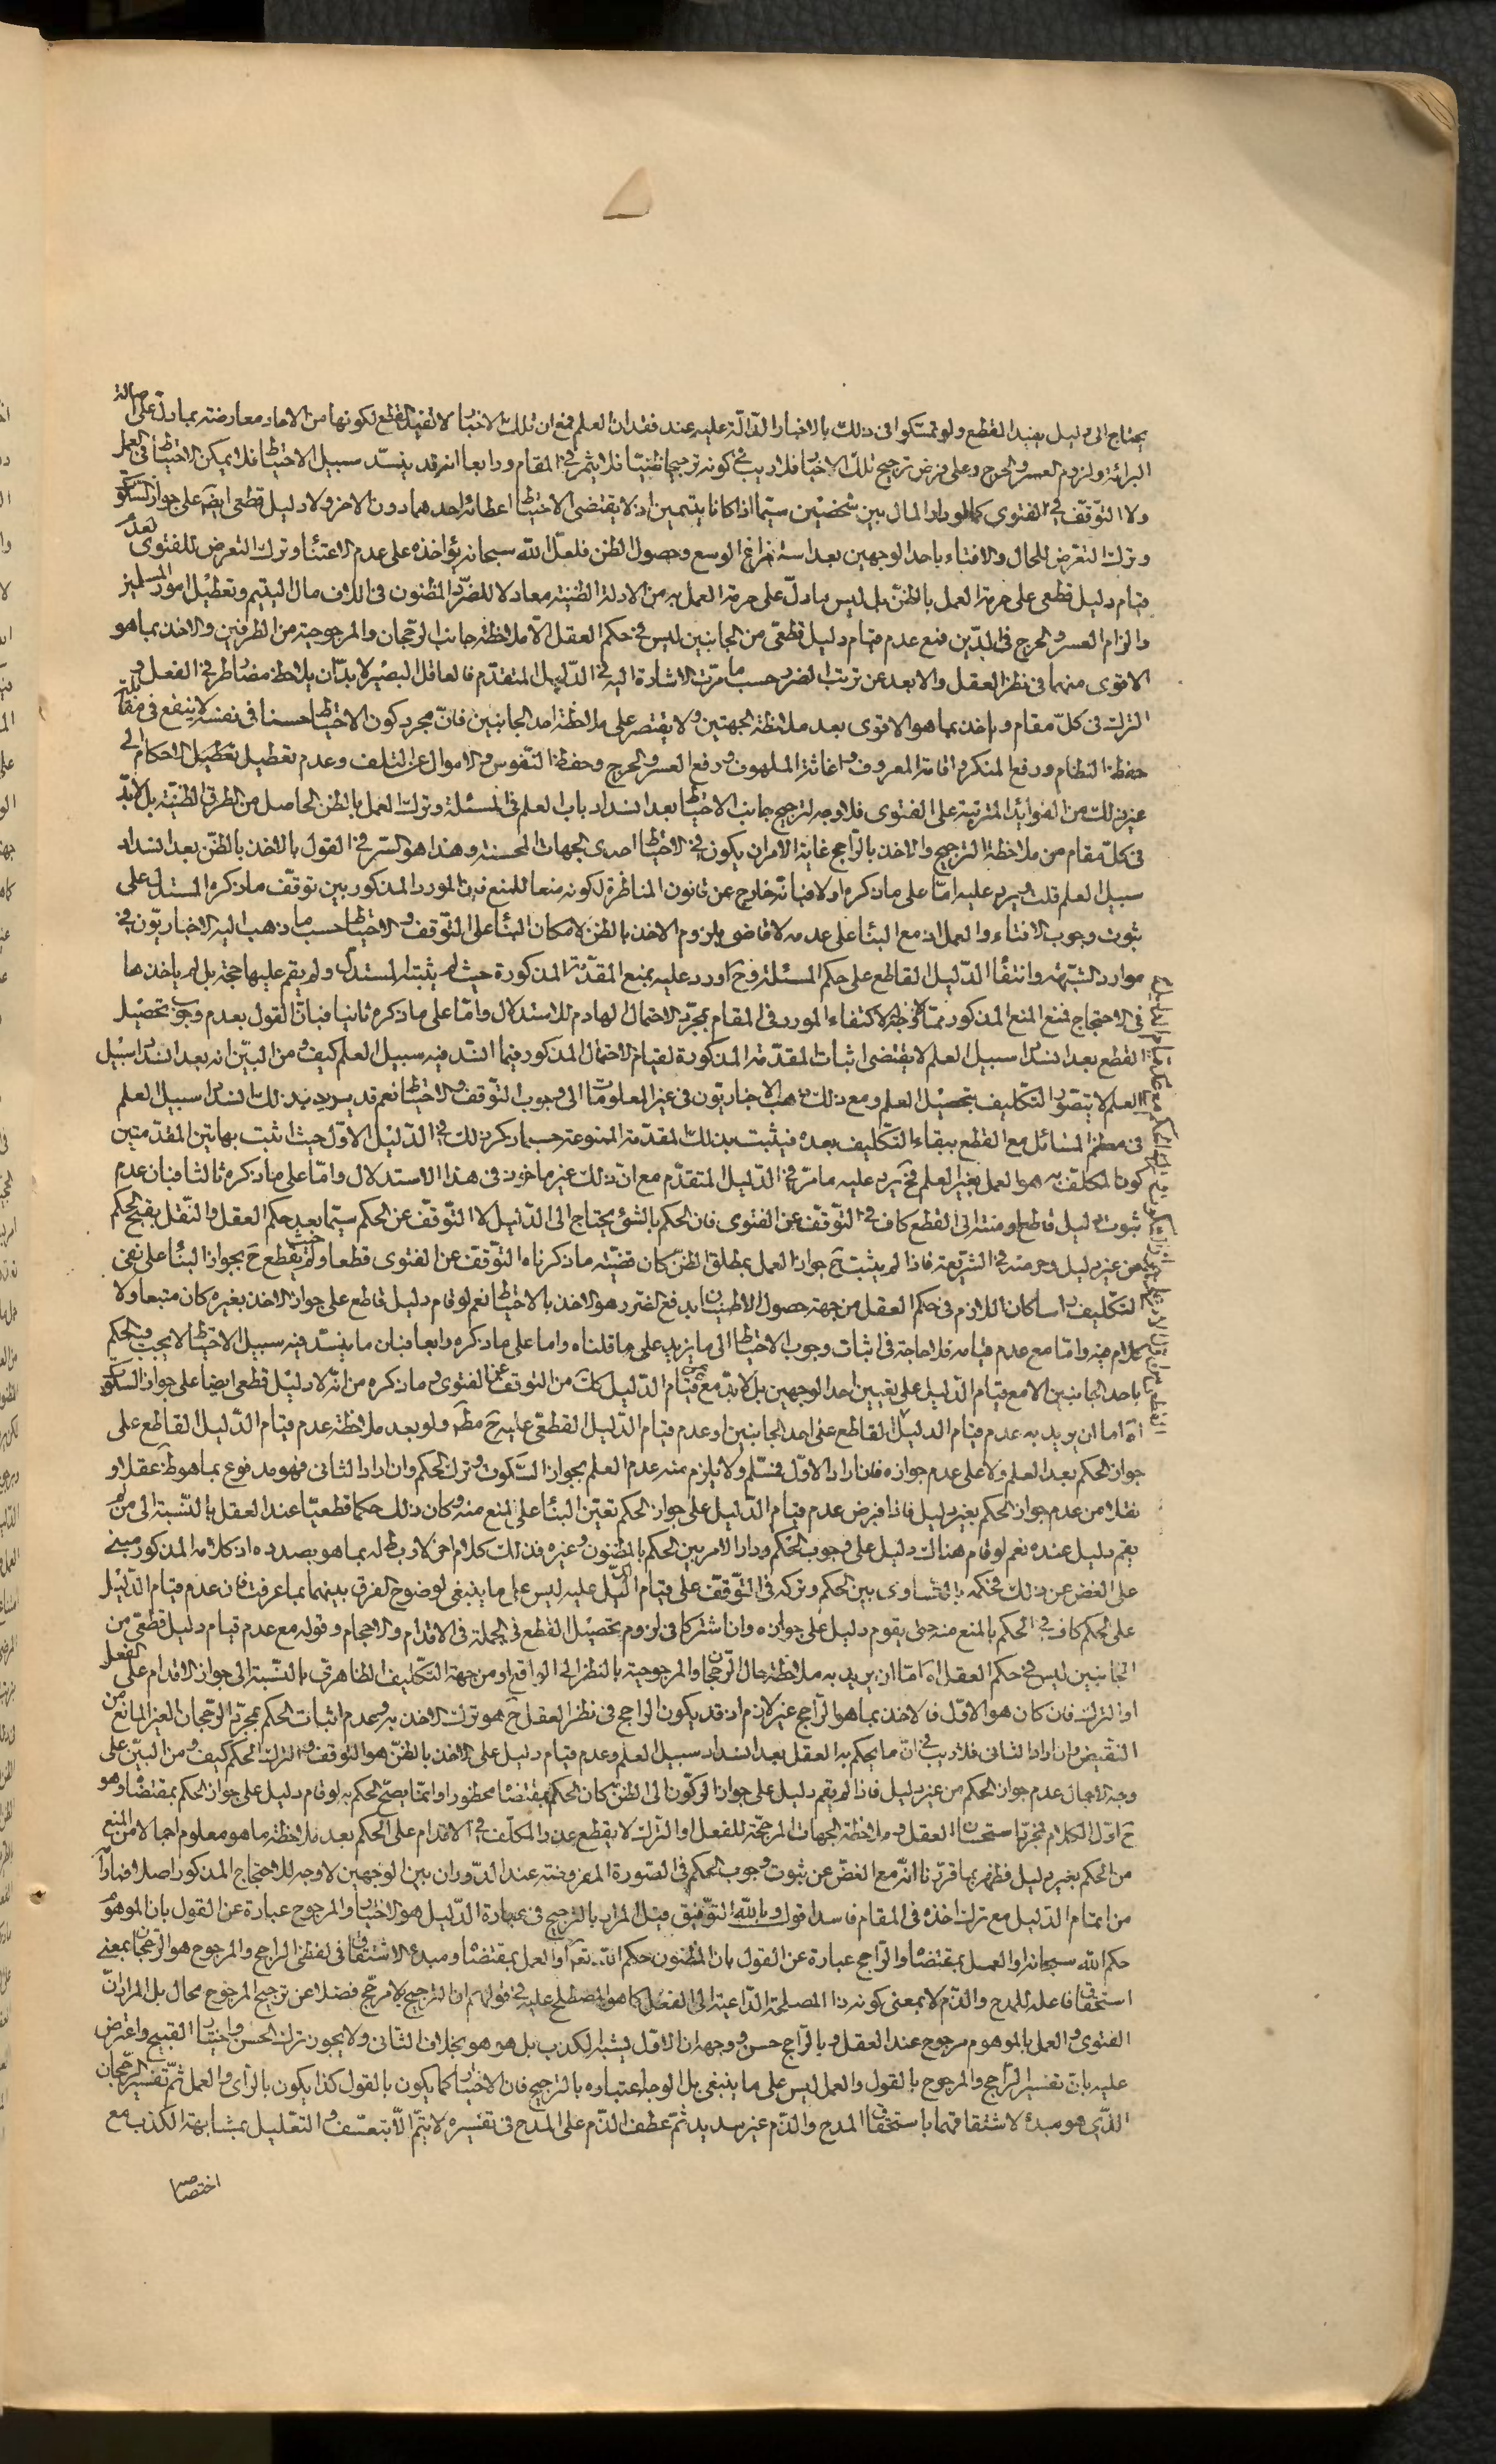 يحتاج الى دليل يفيد القطع ولو تمسكوا فى ذلك بالاخبار الدالة عليه عند فقدان العلم فمع ان تلك الاخبار لا تفيد القطع لكونها من الاحاد معارضته بما دل على اصالة
البرائة ولزوم العسر والحرج وعلى فرض ترجيح تلك الاخبار فلا ريب فى كونه ترجيحا ظنيا فلا يثمر فى المقام ورابعا انه قد ينسد سبيل الاحتياط فلا يمكن الاحتياط فى العمل
ولا التوقف فى الفتوى كما لو دار المال بين شخصين سيما اذا كانا يتيمين اذ لا يقتضى الاحتياط اعطائه احدهما دون الاخر ولا دليل قطعى ايضا على جواز السكوت
وترك التعرض للحال والافتاء باحد الوجهين بعد استفراغ الوسع وحصول الظن فلعل الله سبحانه يؤاخذه على عدم الاعتناء وترك التعرض للفتوى لعدم
قيام دليل قطعى على حرمة العمل بالظن بل ليس ما دل على حرمة العمل به من الادلة الظنية معادلا للضرر المظنون فى اتلاف مال اليتيم وتعطيل امور المسلمين
والزام العسر والحرج فى الدين فمع عدم قيام دليل قطعى من الجانبين ليس فى حكم العقل الا ملاحظة جانب الرجحان والمرجوحية من الطرفين والاخذ بما هو
الاقوى منهما فى نظر العقل والابعد عن ترتب الضرر حسب ما مرت الاشارة اليه فى الدليل المتقدم فالعاقل البصير لا بد ان يلاحظ مضار طرفى الفعل و
الترك فى كل مقام وياخذ بما هو الاقوى بعد ملاحظة الجهتين ولا يقتصر على ملاحظة احد الجانبين فان مجرد كون الاحتياط حسنا فى نفسه لا ينفع فى مقابلة
حفظ النظام ورفع المنكر واقامة المعروف واغاثة الملهوف ورفع العسر والحرج وحفظ النفوس والاموال عن التلف وعدم تعطيل الاحكام الى
غير ذلك من الفوايد المترتبة على الفتوى فلا وجه لترجيح جانب الاحتياط بعد انسداد باب العلم فى المسئلة وترك العمل بالظن الحاصل من الطرق الظنية بل لا بد
فى كل مقام من ملاحظة الترجيح والاخذ بالراجح غاية الامر ان يكون فى الاحتياط احدى الجهات المحسنة وهذا هو السر فى القول بالاخذ بالظن بعد انسداد
سبيل العلم قلت ويرد عليه اما على ما ذكره اولا فبانه خارج عن قانون المناظرة لكونه منعا للمنع فان المورد المذكور بين توقف ما ذكره المستدل على
ثبوت وجوب الافتاء والعمل اذ مع البناء على عدمه لا قاضى بلزوم الاخذ بالظن لامكان البناء على التوقف والاحتياط حسب ما ذهب اليه الاخباريون فى
موارد الشبهة وانتفاء الدليل القاطع على حكم المسئلة وح اورد عليه بمنع المقدمة المذكورة حيث لم يثبته المستدل ولم يقم عليها حجة بل لم ياخذها
فى الاحتجاج فمنع المنع المذكور مما لا وجه له لاكتفاء المورد فى المقام بمجرد الاحتمال الهادم للاستدلال واما على ما ذكره ثانيا فبان القول بعدم وجوب تحصيل
القطع بعد انسداد سبيل العلم لا يقتضى اثبات المقدمة المذكورة لقيام الاحتمال المذكور فيما انسد فيه سبيل العلم كيف ومن البين انه بعد انسداد سبيل
العلم لا يتصور التكليف بتحصيل العلم ومع ذلك ذهب الاخباريون فى غير المعلومات الى وجوب التوقف والاحتياط نعم قد يريد بذلك انسداد سبيل العلم
فى معظم المسائل مع القطع ببقاء التكليف بعده فيثبت بذلك المقدمة الممنوعة حسب ما ذكر ذلك فى الدليل الاول حيث اثبت بهاتين المقدمتين
كون المكلف به هو العمل بغير العلم فح يرد عليه ما مر فى الدليل المتقدم مع ان ذلك غير ماخوذ فى هذا الاستدلال واما على ما ذكره ثالثا فبان عدم
ثبوت دليل قاطع او منته الى القطع كاف فى التوقف عن الفتوى فان الحكم بالشئ يحتاج الى الدليل لا التوقف عن الحكم سيما بعد حكم العقل والنقل بقبح الحكم
من غير دليل وحرمته فى الشريعة فاذا لم يثبت ح جواز العمل بمطلق الظن كان قضية ما ذكرناه التوقف عن الفتوى قطعا وحيث لم يقطع ح بجواز البناء على نفى
التكليف راسا كان اللازم فى حكم العقل من جهة حصول الاطمينان بدفع الضرر هو الاخذ بالاحتياط نعم لو قام دليل قاطع على جواز الاخذ بغيره كان متبعا ولا
كلام فيه واما مع عدم قيامه فلا حاجة فى اثبات وجوب الاحتياط الى ما يزيد على ما قلناه واما على ما ذكره رابعا فبان ما ينسد فيه سبيل الاحتياط لا يجب فيه الحكم
باحد الجانبين الا مع قيام الدليل على تعيين احد الوجهين بل لا بد مع عدم قيام الدليل كك من التوقف عن الفتوى وما ذكره من انه لا دليل قطعى ايضا على جواز السكوت
اه اما ان يريد به عدم قيام الدليل القاطع على احد الجانبين او عدم قيام الدليل القطعى عليه ح مطلقا ولو بعد ملاحظة عدم قيام الدليل القاطع على
جواز الحكم بعد العلم ولا على عدم جوازه فان اراد الاول فمسلم ولا يلزم منه عدم العلم بجواز السكوت وترك الحكم وان اراد الثانى فهو مدفوع بما هو ظاهر عقلا و
نقلا من عدم جواز الحكم بغير دليل فاذا فرض عدم قيام الدليل على جواز الحكم تعين البناء على المنع منه وكان ذلك حكما قطعيا عند العقل بالنسبة الى من لم
يقم دليل عنده نعم لو قام هناك دليل على وجوب الحكم ودار الامر بين الحكم بالمظنون وغيره فذلك كلام اخر لا ربط له بما هو بصدده اذ كلامه المذكور مبنى
على الغض عن ذلك فحكمه بالتساوى بين الحكم وتركه فى التوقف على قيام الدليل عليه ليس على ما ينبغى لوضوح الفرق بينهما بما عرفت فان عدم قيام الدليل
على الحكم كاف فى الحكم بالمنع منه حتى يقوم دليل على جوازه وان اشتركا فى لزوم تحصيل القطع فى الجملة فى الاقدام والاحجام وقوله مع عدم قيام دليل قطعى من
الجانبين ليس فى حكم العقل اه اما ان يريد به ملاحظة حال الرجحان والمرجوحية بالنظر الى الواقع او من جهة التكليف الظاهرى بالنسبة الى جواز الاقدام على الفعل
او الترك فان كان هو الاول فالاخذ بما هو الراجح غير لازم اذ قد يكون الراجح فى نظر العقل ح هو ترك الاخذ به وعدم اثبات الحكم بمجرد الرجحان الغير المانع من
النقيض وان اراد الثانى فلا ريب فى ان ما يحكم به العقل بعد انسداد سبيل العلم وعدم قيام دليل على الاخذ بالظن هو التوقف وترك الحكم كيف ومن البين على
وجه الاجمال عدم جواز الحكم من غير دليل فاذا لم يقم دليل على جواز الركون الى الظن كان الحكم بمقتضاه محظورا وانما يصح الحكم به لو قام دليل على جواز الحكم بمقتضاه وهو
ح اول الكلام فمجرد استحسان العقل وملاحظة الجهات المرجحة للفعل او الترك لا يقطع عذر المكلف فى الاقدام على الحكم بعد ملاحظة ما هو معلوم اجمالا من المنع
من الحكم بغير دليل فظهر بما قررنا انه مع الغض عن ثبوت وجوب الحكم فى الصورة المفروضة عند الدوران بين الوجهين لا وجه للاحتجاج المذكور اصلا فما اراد
من اتمام الدليل مع ترك اخذه فى المقام فاسد اقول وبالله التوفيق قيل المراد بالترجيح فى عبارة الدليل هو الاختيار والمرجوح عبارة عن القول بان الموهوم
حكم الله سبحانه او العمل بمقتضاه والراجح عبارة عن القول بان المظنون حكم الله تعم او العمل بمقتضاه ومبدء الاشتقاق فى لفظى الراجح والمرجوح هو الرجحان بمعنى
استحقاق فاعله للمدح والذم لا بمعنى كونه ذا المصلحة الداعية الى الفعل كما هو المصطلح عليه فى قولهم ان الترجيح بلا مرجح فضلا عن ترجيح المرجوح محال بل المراد ان
الفتوى والعمل بالموهوم مرجوح عند العقل وبالراجح حسن ووجهه ان الاول يشبه الكذب بل هو هو بخلاف الثانى ولا يجوز ترك الحسن واختيار القبيح واعترض
عليه بان تفسير الراجح والمرجوح بالقول والعمل ليس على ما ينبغى بل الوجه اعتباره بالترجيح فان الاختيار كما يكون بالقول كذا يكون بالراى والعمل ثم تفسير الرجحان
الذى هو مبدء لاشتقاقهما باستحقاق المدح والذم غير سديد ثم عطف الذم على المدح فى تفسيره لا يتم الا بتعسف والتعليل بمشابهة الكذب مع
اختصاصه